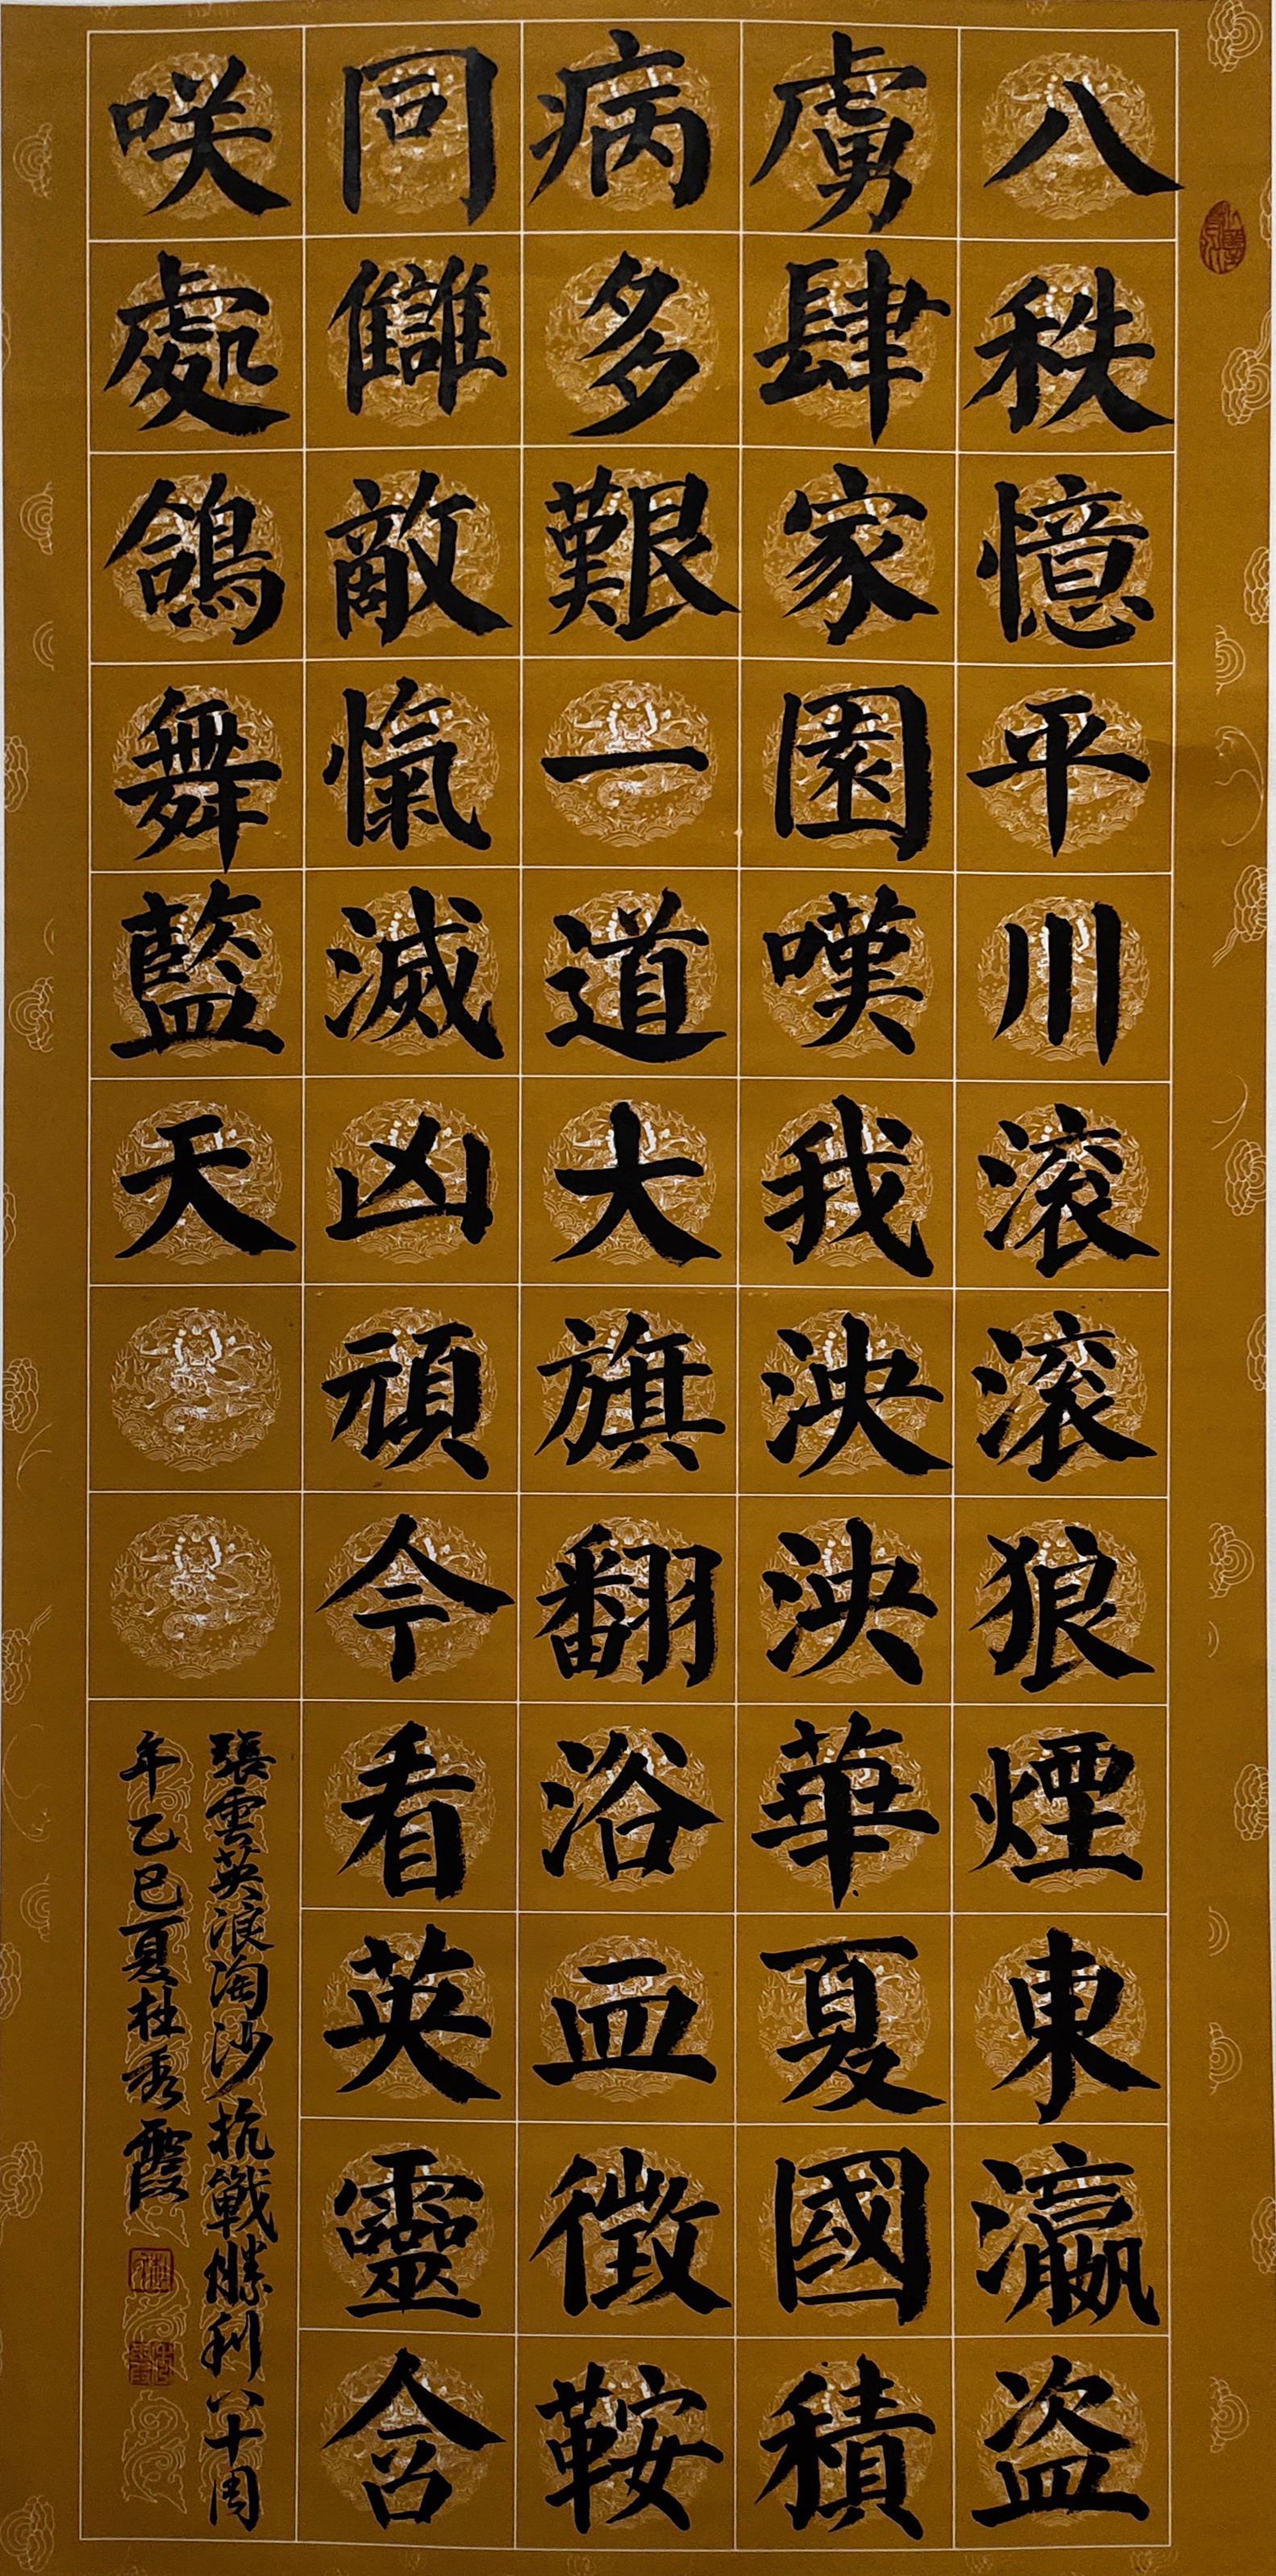 八秩憶平川滚滚狼煙東瀛盗
虜肆家園嘆我泱泱華夏國積
病多艱一道大旗翻浴血徵鞍
同讎敵愾滅凶頑今看英靈含
咲處鴿舞藍天
張雲英浪淘沙抗戰勝利八十周
年乙巳夏杜秀霞